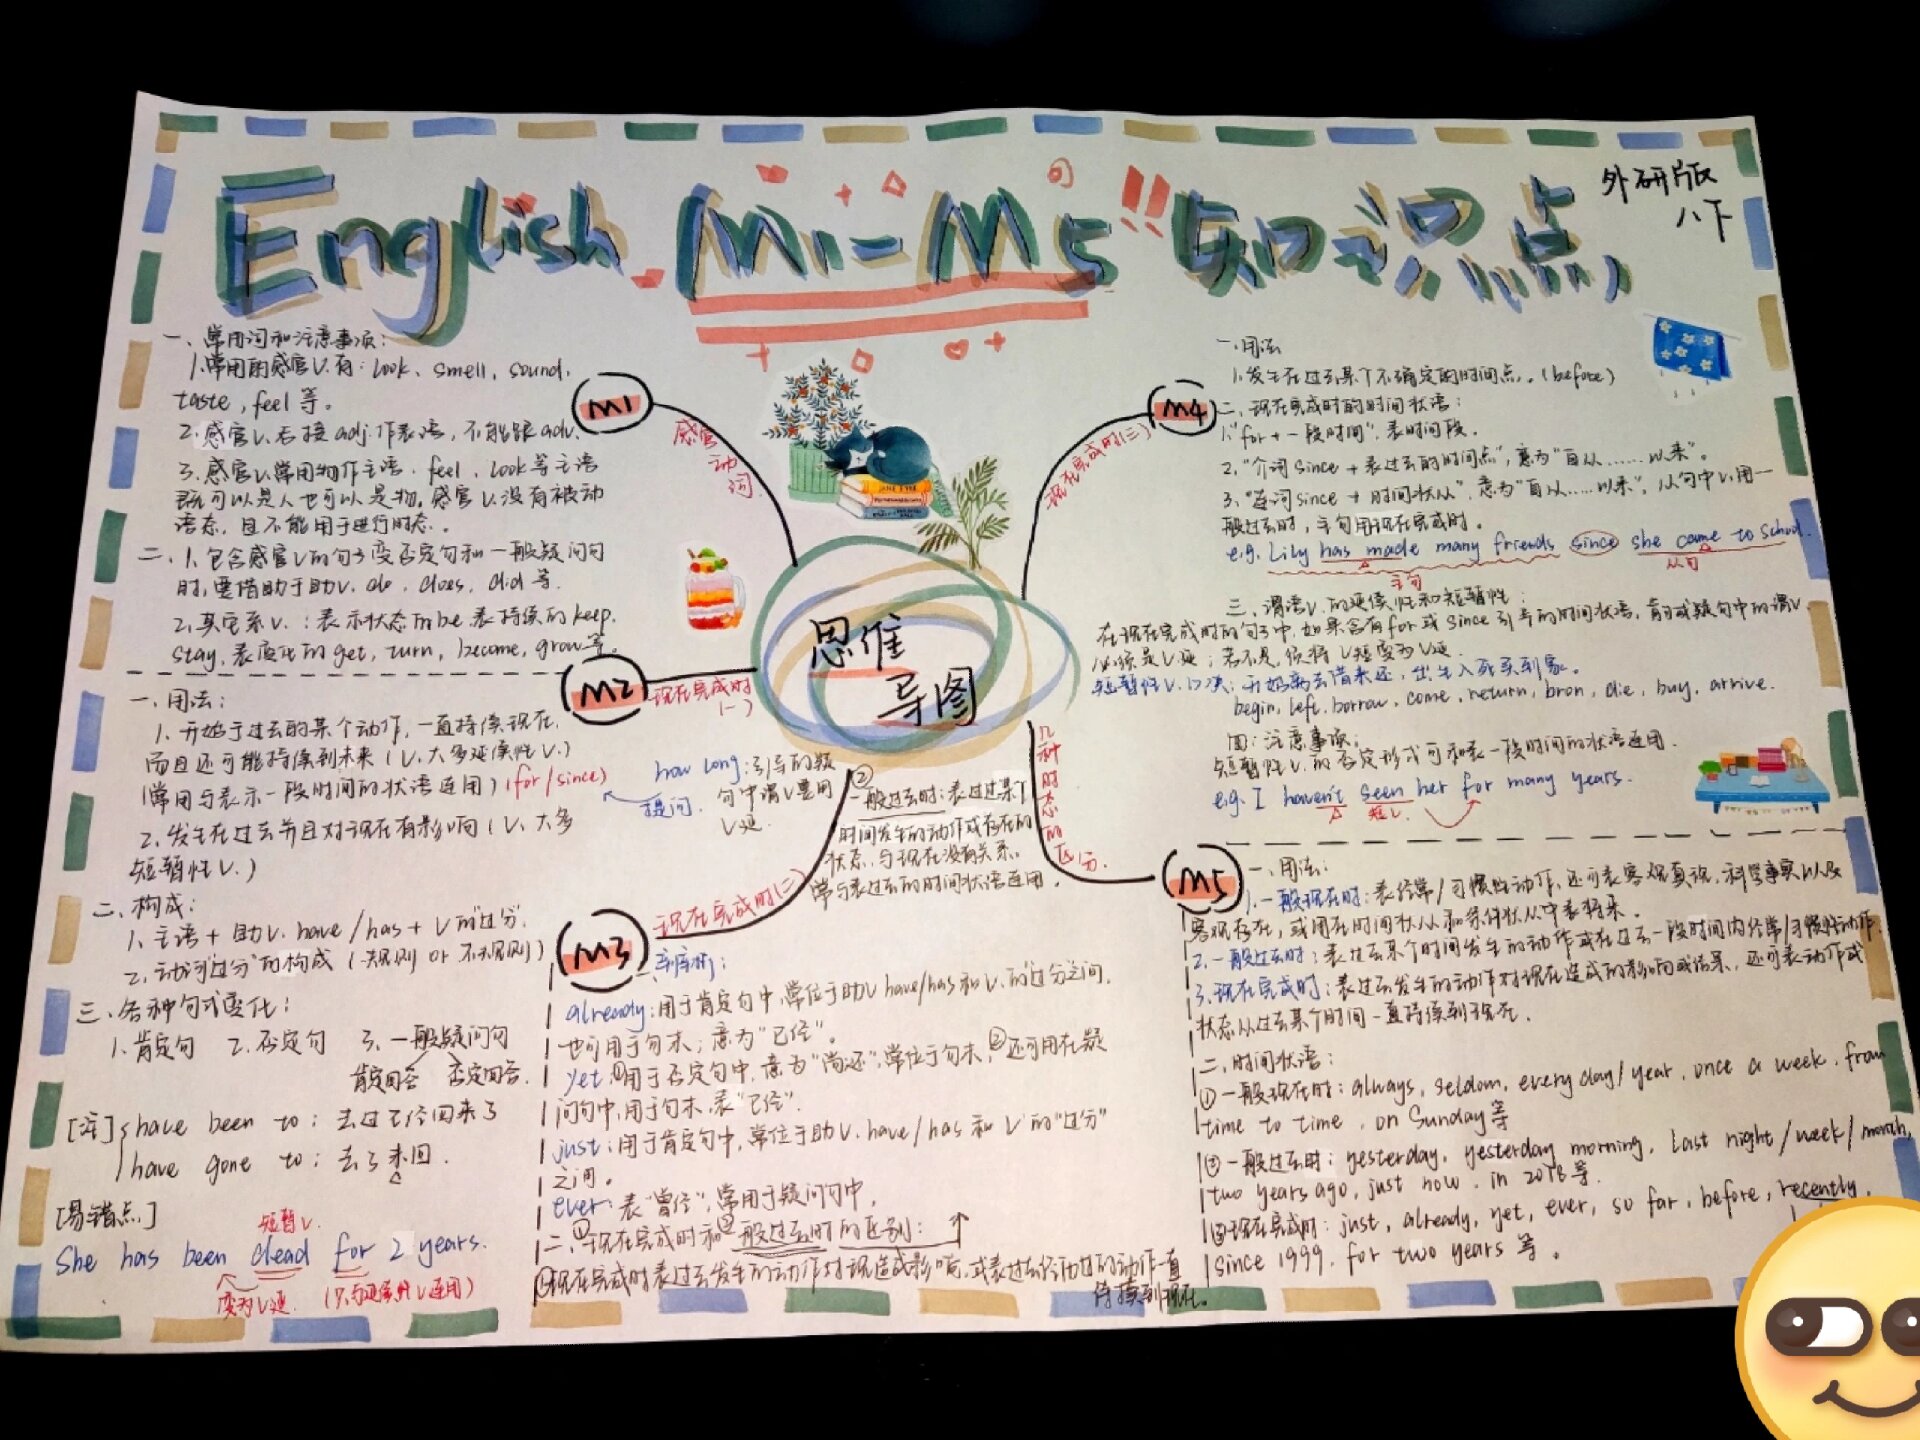 English M1-M5!! 知识点
外研版
八下
思维
导图
M1
感官
动词
一、常用词和注意事项:
1.常用的感官v.有: look、smell、sound、
taste, feel 等.
2.感官v.后接adj.作表语, 不能跟adv.
3.感官v.常用物作主语. feel、look等主语
既可以是人也可以是物. 感官v.没有被动
语态, 且不能用于进行时态.
二、1.包含感官v.的句子变否定句和一般疑问句
时, 要借助于助v. do, does, did 等.
2.其它系v.: 表示状态的be.表持续的keep.
stay, 表变化的get, turn, become, grow等.
M2
现在完成时
(一)
一、用法:
1. 开始于过去的某个动作, 一直持续现在,
而且还可能持续到未来(v.大多延续性v.)
(常用与表示一段时间的状语连用)(for/since)
how long:引导的疑
句中谓v.要用
v延.
提问.
2.发生在过去并且对现在有影响(v.大多
短暂性v.)
二、构成:
1. 主语+助v. have/has + v的"过分".
2. 动词"过分"的构成 (规则 or 不规则)
三、各种句式变化:
1.肯定句 2.否定句 3.一般疑问句
肯定回答 否定回答.
[注] have been to: 去过已经回来了
have gone to: 去了未回.
[易错点]
短暂v.
She has been dead for 2 years.
变为v延. (只与延续性v连用)
M3
现在完成时(二)
already:用于肯定句中, 常位于助v have/has 和 v.的"过分"之间.
也可用于句末; 意为"已经".
yet:①用于否定句中, 意为"尚还", 常位于句末, ②还可用在疑
问句中, 用于句末, 表"已经".
just:用于肯定句中, 常位于助v. have/has 和 v的"过分"
之间.
ever:表"曾经", 常用于疑问句中.
二、①现在完成时和②一般过去时的区别:
①现在完成时表过去发生的动作对现造成影响, 或表过去
的动作一直
持续到现在.
②
一般过去时:表过过某个
时间发生的动作或存在的
状态, 与现在没有关系.
常与表过去的时间状语连用.
M4
现在完成时(三)
一、用法
1.发生在过去某个不确定的时间点.(before)
二、现在完成时的时间状语:
1."for+一段时间", 表时间段.
2."介词since+表过去的时间点", 意为"自从……以来".
3."连词since+时间状从", 意为"自从……以来", 从句中v.用一
般过去时, 主句用现在完成时.
e.g. Lily has made many friends since she came to school.
主句
从句
三、谓语v.的延续性和短暂性:
在现在完成时的句子中, 如果含有for或since引导的时间状语, 肯或疑句中的谓v.
必须是v延; 若不是, 须将v短变为v延.
短暂性v.口决: 开始离去借来还, 出生入死买到家.
begin, left, borrow, come, return, bron, die, buy, arrive.
四:注意事项:
短暂性v.的否定形式可和表一段时间的状语连用.
e.g. I haven't seen her for many years.
短v.
M5
几种时态的区分.
一、用法:
1.一般现在时: 表经常/习惯性动作, 还可表客观真说, 科学事实以及
客观存在, 或用在时间状从和条件状从中表将来.
2.一般过去时: 表过去某个时间发生的动作或在过去一段时间内经常/习惯性动作.
3.现在完成时: 表过去发生的动作对现在造成的影响或结果, 还可表动作或
状态从过去某个时间一直持续到现在.
二、时间状语:
①一般现在时: always, seldom, every day/year, once a week, from
time to time, on Sunday等
②一般过去时: yesterday, yesterday morning, last night/week/month,
two years ago, just now, in 2018等.
③现在完成时: just, already, yet, ever, so far, before, recently,
since 1999, for two years 等.